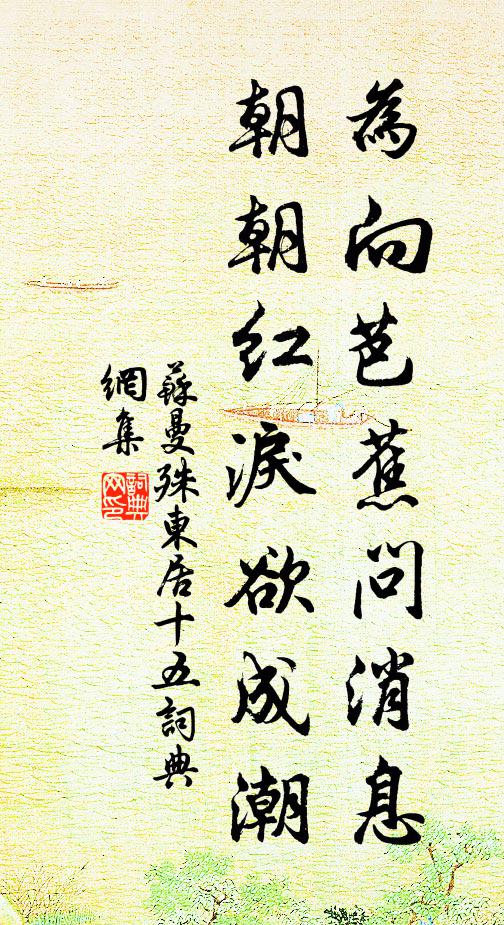 為向芭蕉問消息
朝朝紅淚欲成潮
蘇曼殊東居十五詞典
網集
詞典
网印